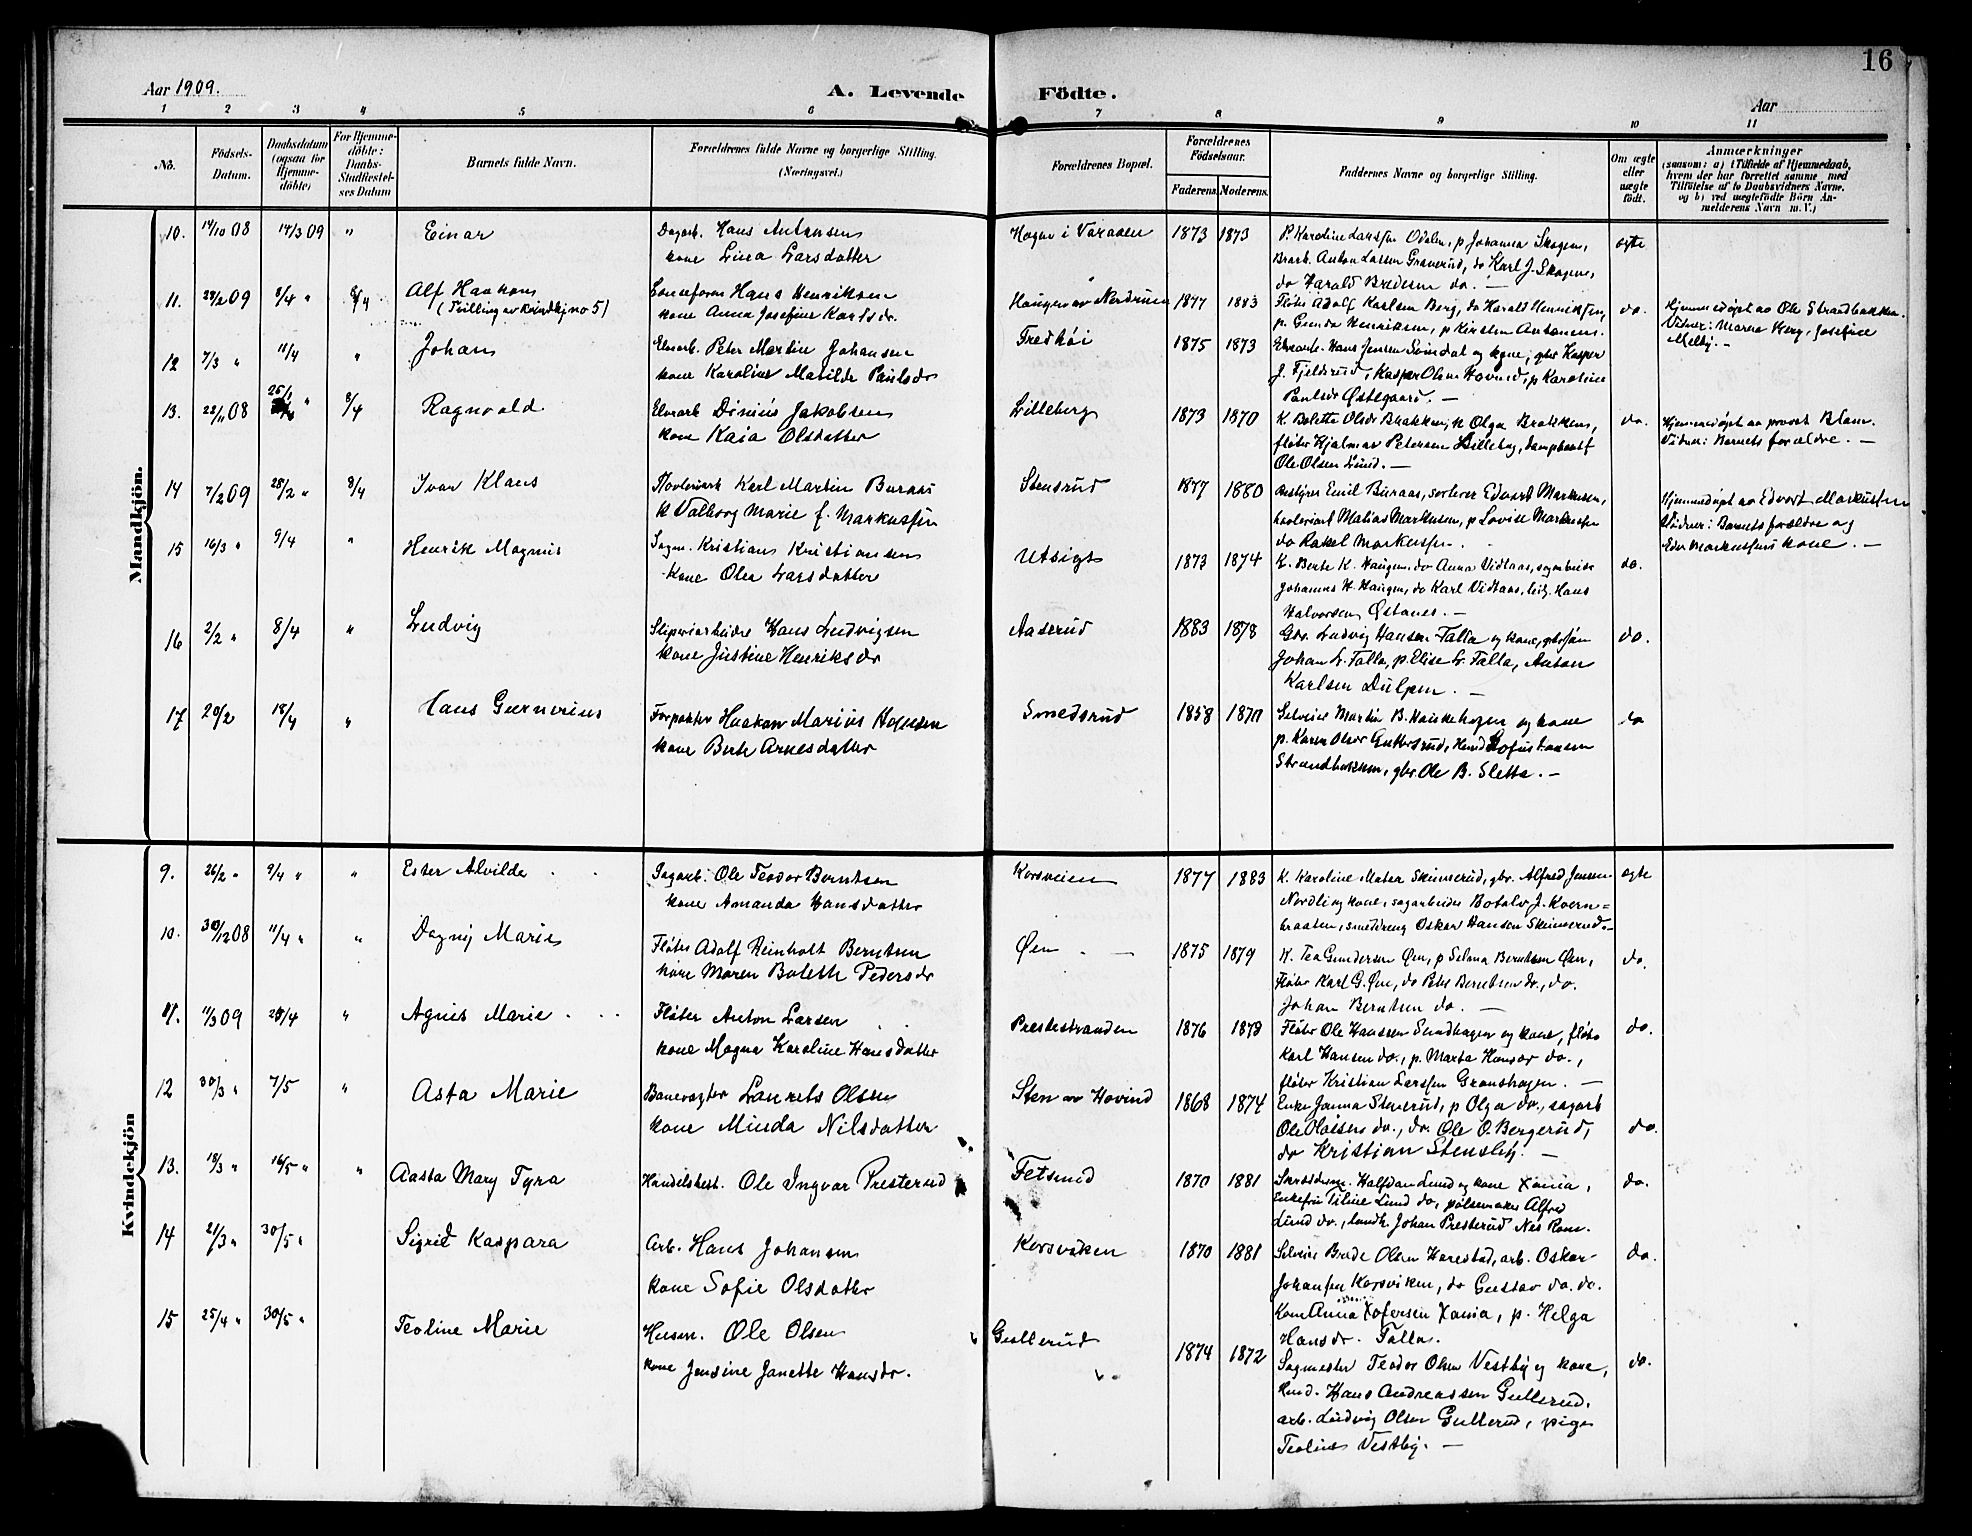 16
Aar 1909.
A. Levende Födte.
Aar
1 2 3 4 5 6 7 8 9 10 11
No.
Födsels-Datum.
Daabsdatum (ogsaa for Hjemmedöbte)
For Hjemmedöbte: Daabs-Stadfæstelses Datum
Barnets fulde Navn.
Forældrenes fulde Navne og borgerlige Stilling. (Næringsvei.)
Forældrenes Bopæl.
Forældrenes Födselsaar.
Faderens. Moderens.
Faddernes Navne og borgerlige Stilling.
Om ægte eller uægte födt.
Anmærkninger
(saasom: a) i Tilfælde af Hjemmedaab,
hvem der har forrettet samme med
Tilföielse af to Daabsvidners Navne,
og b) ved uægtefödte Börn An-
melderens Navn m. V.)
Mandkjön.
10. 14/10 08 14/3 09 " Einar
Dagarb. Hans Antonsen
kone Lina Larsdatter
1873 1873
P. Karoline Larssen Odalen, p Johanna Skogen,
Brarb. Anton Larsen Granerud, do Karl J. Skogen,
do Harald Bredesen do. –
ægte
11. 28/2 09 8/4 " 8/4 Alf Haakon
(Tvilling av Kvindekj no 5)
Hans Henriksen
kone Anna Josefine Karlsdr.
Haugen av Nerdrum
1877 1883
Fløter Adolf Karlsen Berg, do Harald Henriksen,
p. Gunda Henriksen, p Kirsten Antonsen.
do.
Hjemmedøpt av Ole Strandbakken.
Vidner: Maren Berg, Josefine
Melby. –
12 7/3 " 11/4 " Johan
Elvearb. Peter Martin Johansen
kone Karoline Matilde Paulsdr
Fredhøi
1875 1873
Elvearb. Hans Jensen Svindal og kone, gbr Kasper
J. Fjeldsrud, Kasper Olsen Hovind, p Karoline
Paulsdr Østegaard. –
13. 22/11 08 8/4 Ragnvald
Elvearb Dinius Jakobsen
kone Kaia Olsdatter
Lilleberg
1873 1870
K. Bolette Olsdr Bakken, p Olga
fløter Hjalmar Petersen Lilleberg,
Ole Olsen Lund. –
do.
Hjemmedøpt av provst Blom.
Vidner: Barnets forældre. –
14 7/2 09 28/2 " 8/4 Ivar Klaus
Høvleriarb Karl Martin Buraas
k Valborg Marie f. Markussen
Stensrud
1877 1880
Bestyrer Emil Buraas, sorterer Edvart Markussen,
høvleriarb Matias Markussen, p Lovise Markussen
do Rakel Markussen.
Hjemmedøpt av Edvart Markussen
Vidner: Barnets forældre og
Edv Markussens kone. –
15 16/3 " 9/4 " Henrik Magnus
Sagm. Kristian Kristiansen
kone Olea Larsdatter
Utsigt
1873 1874
K. Berte K. Haugen, do Anna Vidtaas, sagarbeider
Johannes K. Haugen, do Karl Vidtaas, Hans
Halvorsen Østanes. –
do.
16 2/2 " 8/4 " Ludvig
Sliperiarbeider Hans Ludvigsen
kone Justine Henriksdr
Aaserud
1883 1878
Gbr. Ludvig Hansen Falla og kone, gbrsøn
Johan L. Falla, p. Elise L. Falla, Anton
Karlsen Dulpen. –
do.
17 20/2 18/4 " Hans Gunerius
Forpakter Haakon Marius Hansen
kone Berte Arnesdatter
Smedsrud
1858 1870
Selveier Martin B. og kone
p. Karen Olsdr Guttersrud,
Strandbakken, gbr. Ole B. Sletta. –
do
Kvindekjön
9. 26/2 " 9/4 " " Ester Alvilde
Sagarb. Ole Teodor Berntsen
kone Amanda Hansdatter
Korsveien
1877 1883
K. Karoline Skinnerud, gbr. Alfred Jensen
Nordli og kone, sagarbeider Botolv J. Kvern=
braaten, smeddreng Oskar Hansen Skinnerud. –
ægte
10. 30/12 08 11/4 " " Dagny Marie
Fløter Adolf Reinholt Berntsen
kone Maren Boleth Pedersdr
Øen –
1875 1879
K. Tea Gundersen Øen, p Selma Berntsen Øen,
Fløter Karl G. Øen, do Peter Berntsen do., do.
Johan Berntsen do. –
do.
11. 11/3 09 25/4 " Agnes Marie
Fløter Anton Larsen
kone Magna Karoline Hansdatter
Prestestranden
1876 1879
Fløter Ole Hanssen Sundhagen og kone, fløter
Karl Hansen do., p. Marta Hansdr do.,
fløter Kristian Larssen Granshagen. –
do.
12 30/3 " 7/5 " Asta Marie
Banevogter Laurits Olsen
kone Minda Nilsdatter
Sten av Hovind
1868 1874
Enke Janna Stenerud, p Olga do., sagarb
Ole Olsen do., do. Ole O. Bergerud,
do Kristian Stensby. –
do.
13. 18/3 " 16/5 " " Aasta Mary Tyra
Handelsbest. Ole Ingvar Presterud
Fetsund
1870 1881
Halfdan Lund og kone Xania,
Enkefru Tiline Lund do, pølsemaker Alfred
Lund do., landh. Johan Presterud Nes Rom.
do.
14 21/3 " 30/5 " Sigrid Kaspara
Arb. Hans Johansen
kone Sofie Olsdatter
Korsviken
1870 1881
Selveier Brede Olsen Harestad, arb. Oskar
Johansen Korsviken, do Gustav do. do.
Kone Anna Xofersen Xania, p. Helga
Hansdr. Falla.
do.
15 25/4 " 30/5 " Teoline Marie
Husm. Ole Olsen
kone Jensine Janette Hansdr.
Gullerud
1874 1872
Sagmester Teodor Olsen Vestby og kone,
Hans Andreassen Gullerud,
arb. Ludvig Olsen Gullerud, pige
Teoline Vestby. –
do.